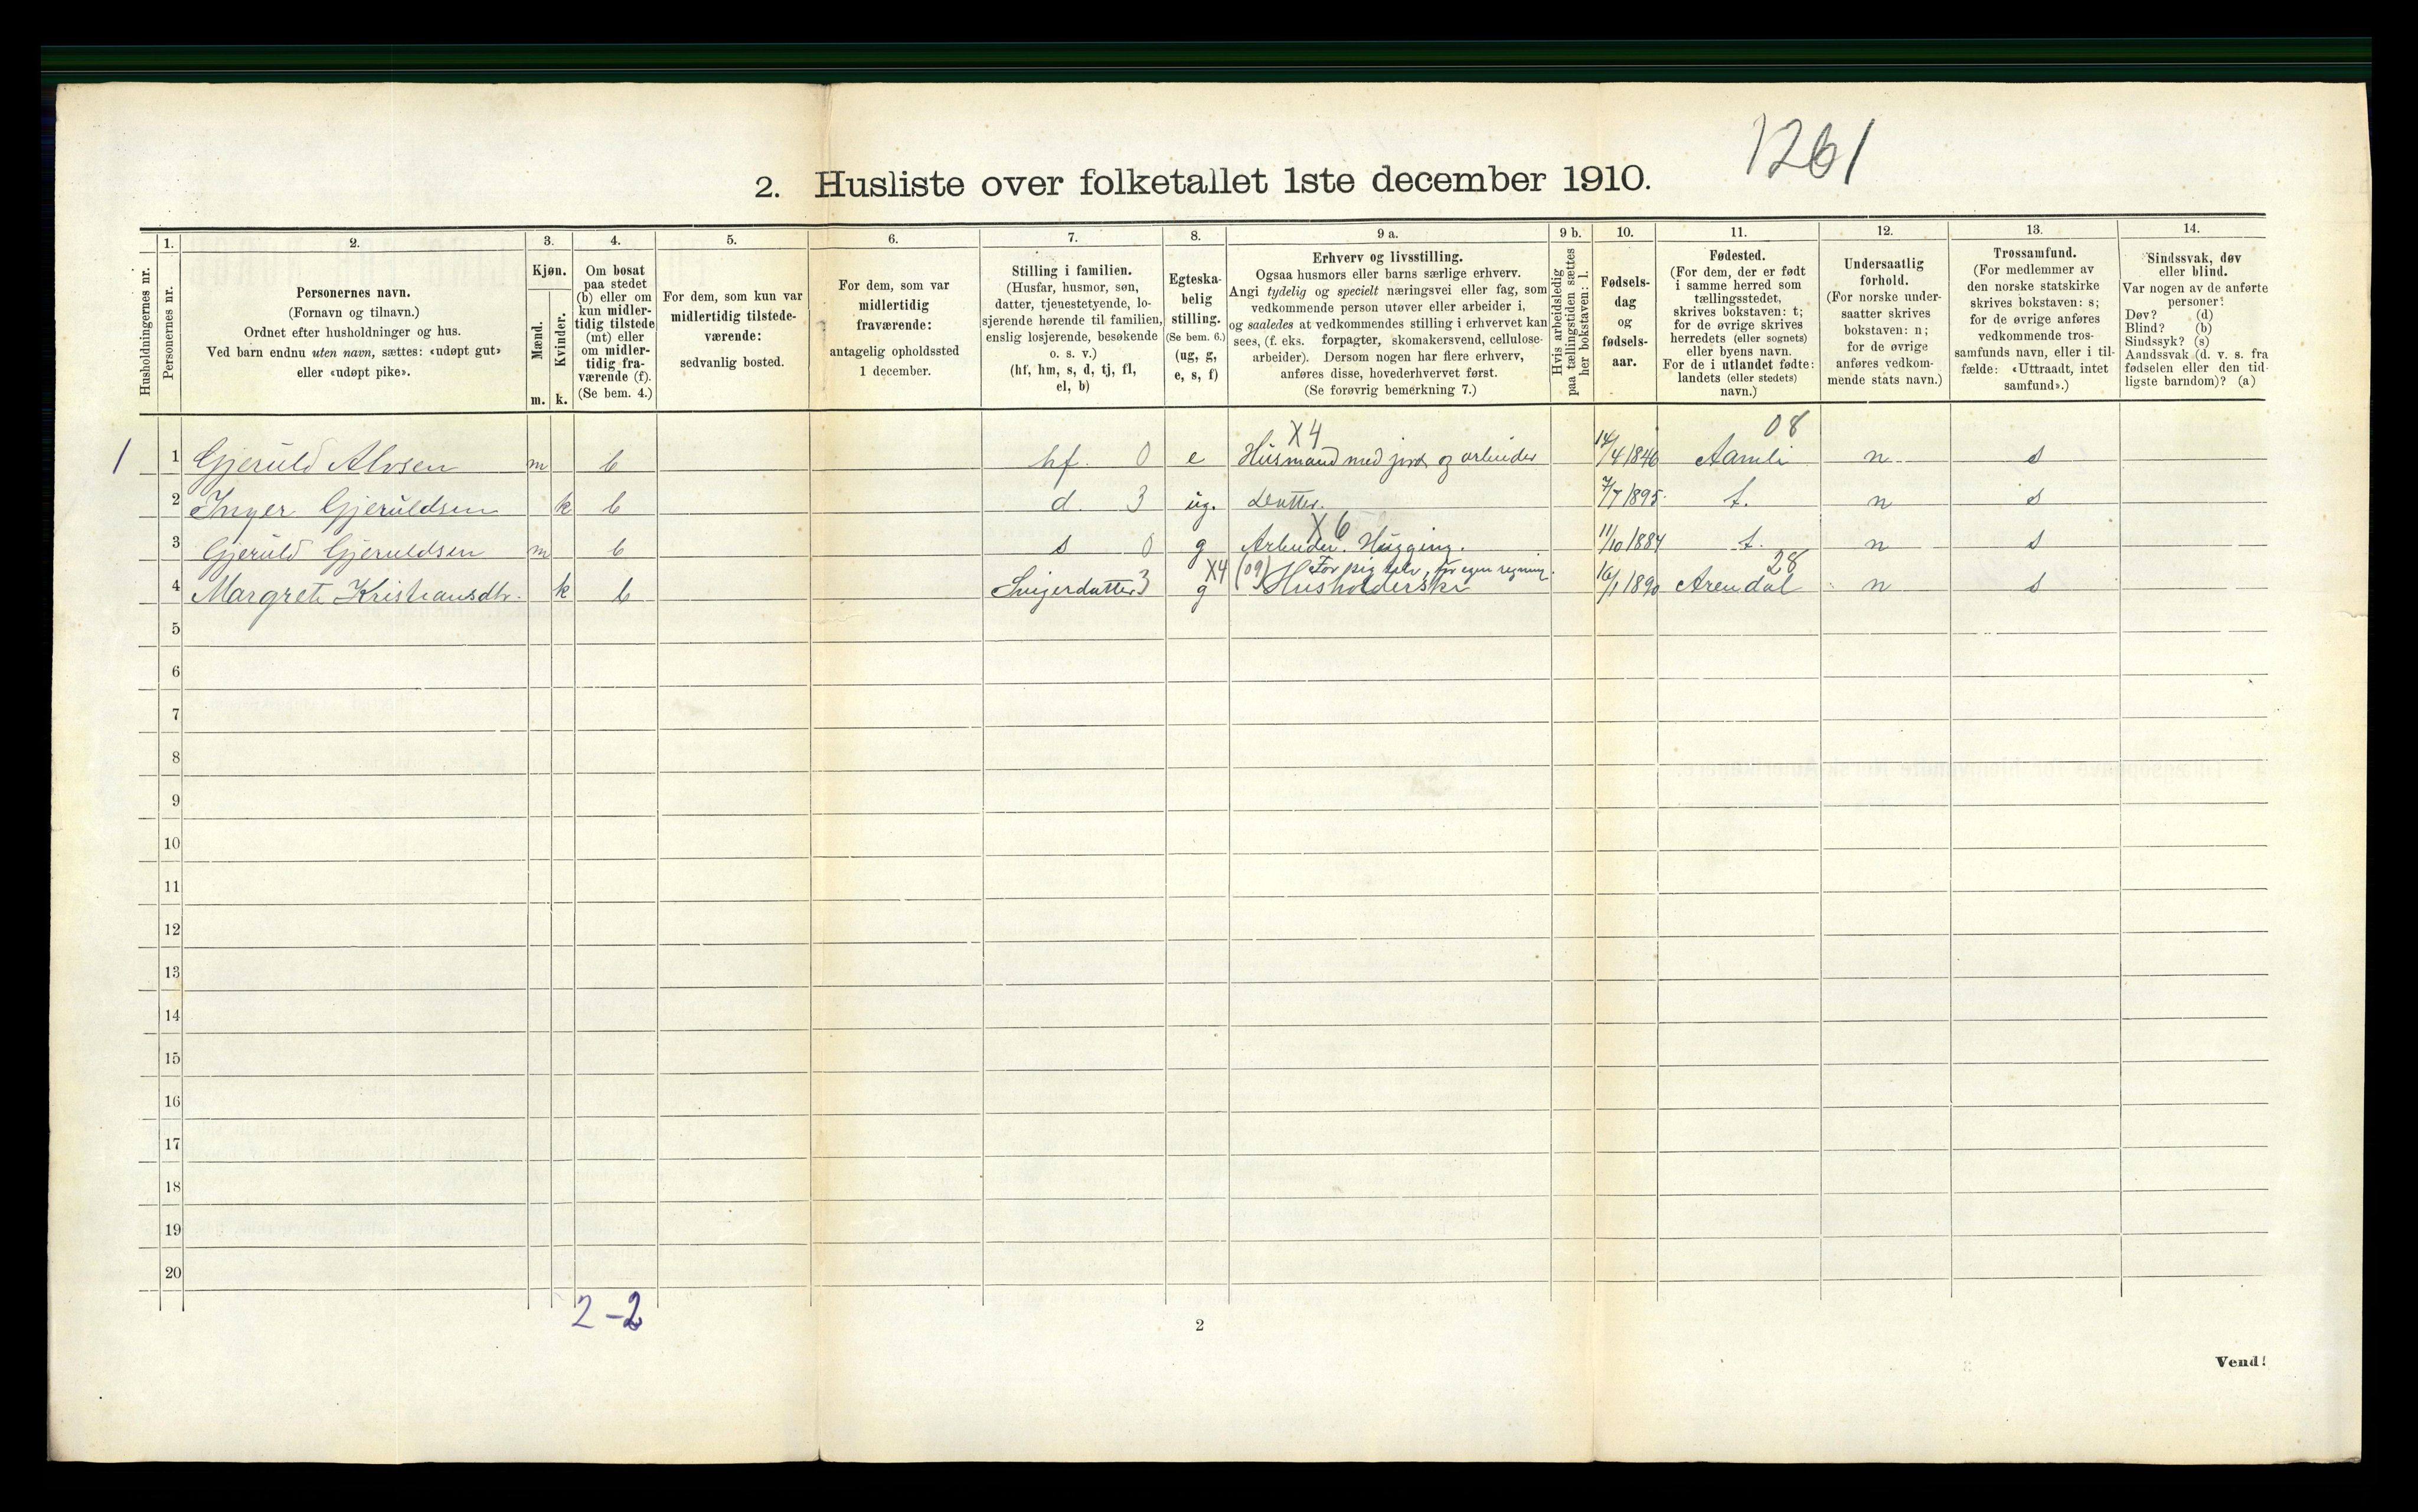 1261
2. Husliste over folketallet 1ste december 1910.
Husholdningernes nr.
1.
Personernes nr.
2.
Personernes navn.
(Fornavn og tilnavn.)
Ordnet efter husholdninger og hus.
Ved barn endnu uten navn, sættes: «udøpt gut»
eller «udøpt pike».
3.
Kjøn.
Mænd.
Kvinder.
m. k.
4.
Om bosat
paa stedet
(b) eller om
kun midler-
tidig tilstede
(mt) eller
om midler-
tidig fra-
værende (f).
(Se bem. 4.)
5.
For dem, som kun var
midlertidig tilstede-
værende:
sedvanlig bosted.
6.
For dem, som var
midlertidig
fraværende:
antagelig opholdssted
1 december.
7.
Stilling i familien.
(Husfar, husmor, søn,
datter, tjenestetyende, lo-
sjerende hørende til familien,
enslig losjerende, besøkende
o. s. v.)
(hf, hm, s, d, tj, fl,
el, b)
8.
Egteska-
belig
stilling.
(Se bem. 6.)
(ug, g,
e, s, f)
9 a.
Erhverv og livsstilling.
Ogsaa husmors eller barns særlige erhverv.
Angi tydelig og specielt næringsvei eller fag, som
vedkommende person utøver eller arbeider i,
og saaledes at vedkommendes stilling i erhvervet kan
sees, (f. eks. forpagter, skomakersvend, cellulose-
arbeider). Dersom nogen har flere erhverv,
anføres disse, hovederhvervet først.
(Se forøvrig bemerkning 7.)
9 b.
Hvis arbeidsledig
paa tællingstiden sættes
her bokstaven: l.
10.
Fødsels-
dag
og
fødsels-
aar.
11.
Fødested.
(For dem, der er født
i samme herred som
tællingsstedet,
skrives bokstaven: t;
for de øvrige skrives
herredets (eller sognets)
eller byens navn.
For de i utlandet fødte:
landets (eller stedets)
navn.)
12.
Undersaatlig
forhold.
(For norske under-
saatter skrives
bokstaven: n;
for de øvrige
anføres vedkom-
mende stats navn.)
13.
Trossamfund.
(For medlemmer av
den norske statskirke
skrives bokstaven: s;
for de øvrige anføres
vedkommende tros-
samfunds navn, eller i til-
fælde: «Uttraadt, intet
samfund».)
14.
Sindssvak, døv
eller blind.
Var nogen av de anførte
personer:
Døv? (d)
Blind? (b)
Sindssyk? (s)
Aandssvak (d. v. s. fra
fødselen eller den tid-
ligste barndom)? (a)
X4 08
1 1 Gjeruld Alvsen m b hf. 0 e Husmand med jord og arbeider 14/4 1846 Aamli n s
2 Inger Gjeruldsen k b d. 3 ug. Datter. 7/7 1895 t. n s
X6
3 Gjeruld Gjeruldsen m b s 0 g Arbeider. Hugging. 11/10 1884 t. n s
X4 (09) For sig selv, for egen regning. 28
4 Margrete Kristiansdtr. k b Svigerdatter 3 g Husholderske 16/1 1890 Arendal n s
5
6
7
8
9
10
11
12
13
14
15
16
17
18
19
20
2-2
2
Vend!